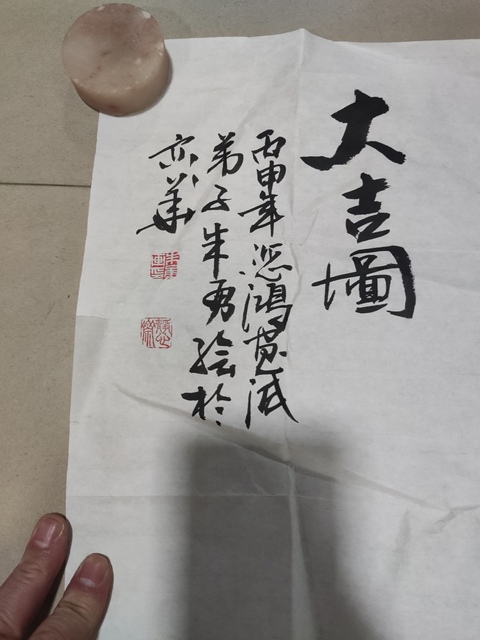 大吉圖
丙申年悲鴻畫派
弟子朱勇绘於
京華